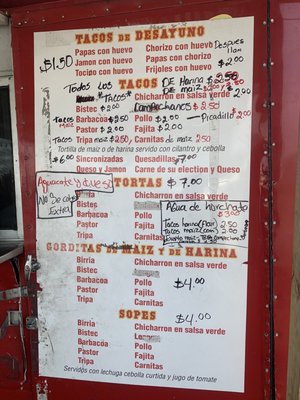 TACOS DE DESAYUNO
Papas con huevo Chorizo con huevo Despues
Jamon con huevo Papas con huevo 11am
$1.50
Tocino con huevo Frijoles con huevo $2.00
Todos los TACOS DE Harina $2.50
DE maiz $2.00
Tacos Chicharron en salsa verde
Bistec $2.00 Campechanos $2.50
Tacos Barbacoa $2.50 Pollo $2.00 Picadillo 2.00
Pastor $2.00 Fajita $2.00
Tacos maiz Tripa maiz $2.50 Carnitas de maiz 2.50
Tortilla de maiz o harina servido con cilantro y cebolla
$6.00 Sincronizadas Quesadillas $7.00
Queso y Jamon Carne de su election y Queso
Aguacate y queso
No se cobra Extra
TORTAS $7.00
Birria Chicharron en salsa verde
Bistec
Barbacoa Pollo
Pastor Fajita
Tripa Carnitas
Agua de horchata
$3.00
Tacos harina 2.50
Tacos maiz 2.00
GORDITAS DE MAIZ Y DE HARINA
Birria Chicharron en salsa verde
Bistec
Barbacoa Pollo $4.00
Pastor Fajita
Tripa Carnitas
SOPES $4.00
Birria Chicharron en salsa verde
Bistec
Barbacoa Pollo
Pastor Fajita
Tripa Carnitas
Servidos con lechuga cebolla curtida y jugo de tomate